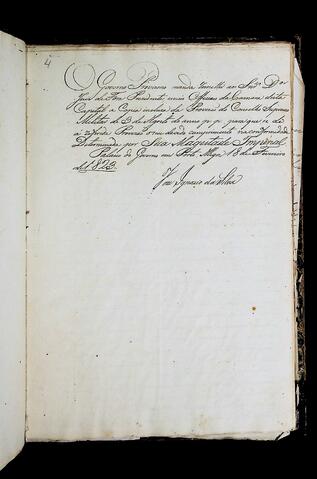 4
O Governo Provizorio manda remetter ao Snr. Dor.
Juiz de Fora Prezidente, e mais Officiaes da Camara desta
Capital a Copia incluza da Provizão do Conselho Supremo
Militar de 3 de Agosto do anno p. p. para que se dê
a referida Provizão o seu devido cumprimento na conformidade
Determinada por Sua Magestade Imperial
Palacio do Governo em Porto Alegre 18 de Fevereiro
de 1823.
Joze Ignacio da Silva